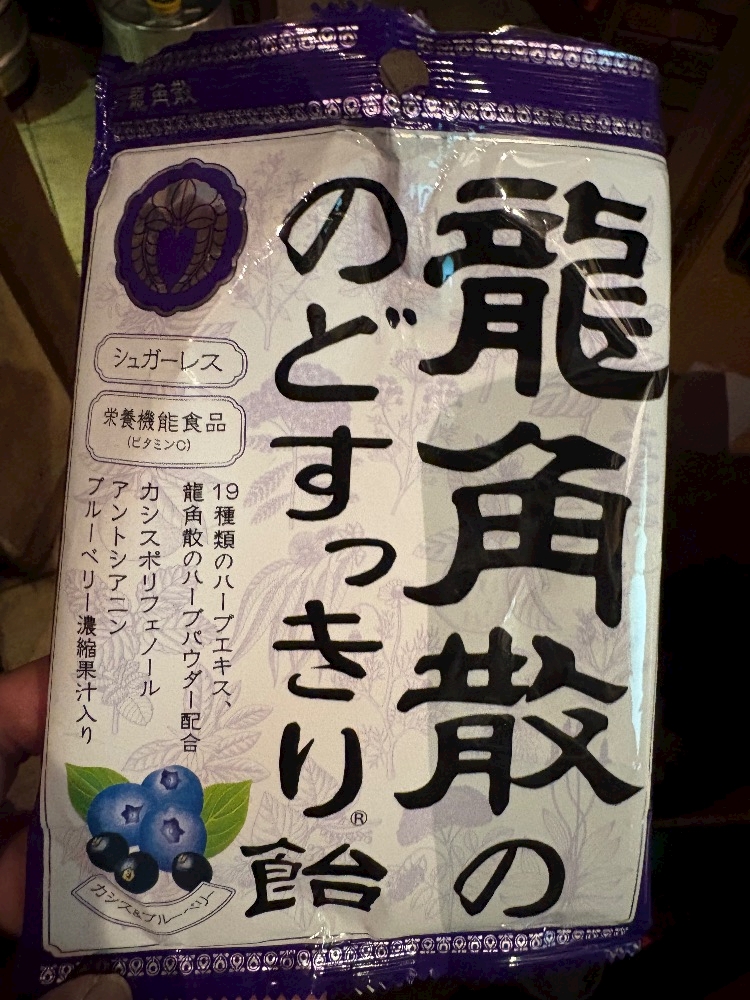 龍角散
龍角散の
のどすっきり®飴
シュガーレス
栄養機能食品
(ビタミンC)
19種類のハーブエキス、
龍角散のハーブパウダー配合
カシスポリフェノール
アントシアニン
ブルーベリー濃縮果汁入り
カシス&ブルーベリー